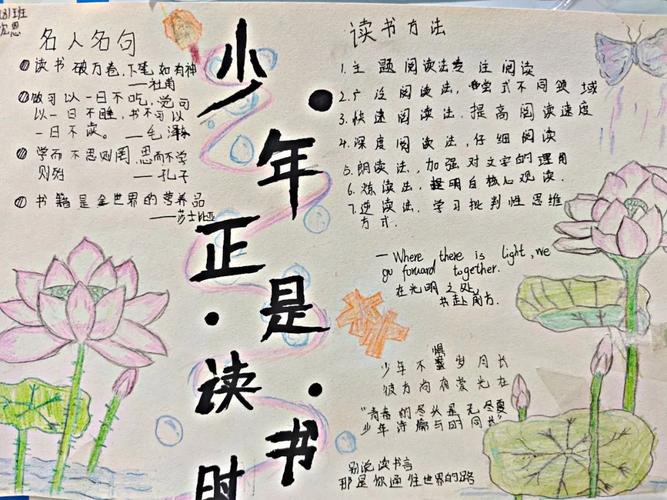 名人名句
读书破万卷，下笔如有神
——杜甫
饭可以一日不吃，觉可
以一日不睡，书不可以
一日不读。——毛泽东
学而不思则罔，思而不学
则殆 ——孔子
书籍是全世界的营养品
——莎士比亚
少年正是读书时
读书方法
1.主题阅读法专注阅读
2.广泛阅读法，尝试不同领域
3.快速阅读法，提高阅读速度
4.深度阅读法，仔细阅读
5.朗读法，加强对文字的理用
6.炼读法，提明白核心观读.
7.逆读法.学习批判性思维
方式.
—Where there is light,we
go forward together.
在光明之处，
共赴前方.
少年不惧岁月长
彼方尚有荣光在
"青春的尽头是无尽夏
少年诗廊与时同长"
别说读书苦
那是你通往世界的路